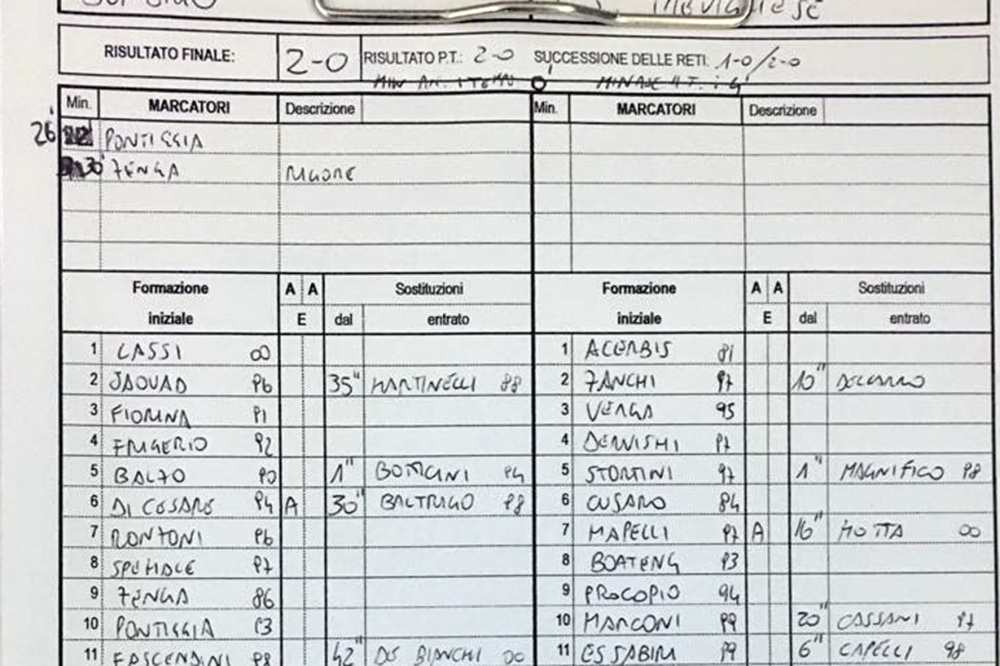 RISULTATO FINALE: 2-0 RISULTATO P.T.: 2-0 SUCCESSIONE DELLE RETI: 1-0/2-0
Min. MARCATORI Descrizione Min. MARCATORI Descrizione
26 PONTIGGIA
30' ZENGA RIGORE
Formazione A A Sostituzioni Formazione A A Sostituzioni
iniziale E dal entrato iniziale E dal entrato
1 CASSI 00 1 ACERBIS 81
2 JAOUAD 96 35" MARTINELLI 88 2 ZANCHI 97 10"
3 FIORINA 91 3 VERGA 95
4 FRIGERIO 92 4 DERVISHI 97
5 BALZO 90 1" 94 5 STORTINI 97 1" MAGNIFICO 98
6 DI CESARE 94 A 30" 98 6 CUSARO 84
7 RONTONI 96 7 MAPELLI 97 A 16" MOTTA 00
8 97 8 BOATENG 93
9 ZENGA 86 9 PROCOPIO 94
10 PONTIGGIA 93 10 MARCONI 99 20" CASSANI 97
11 FASCENDINI 98 42" DE BIANCHI 00 11 ES SABIRI 99 6" CAPELLI 98